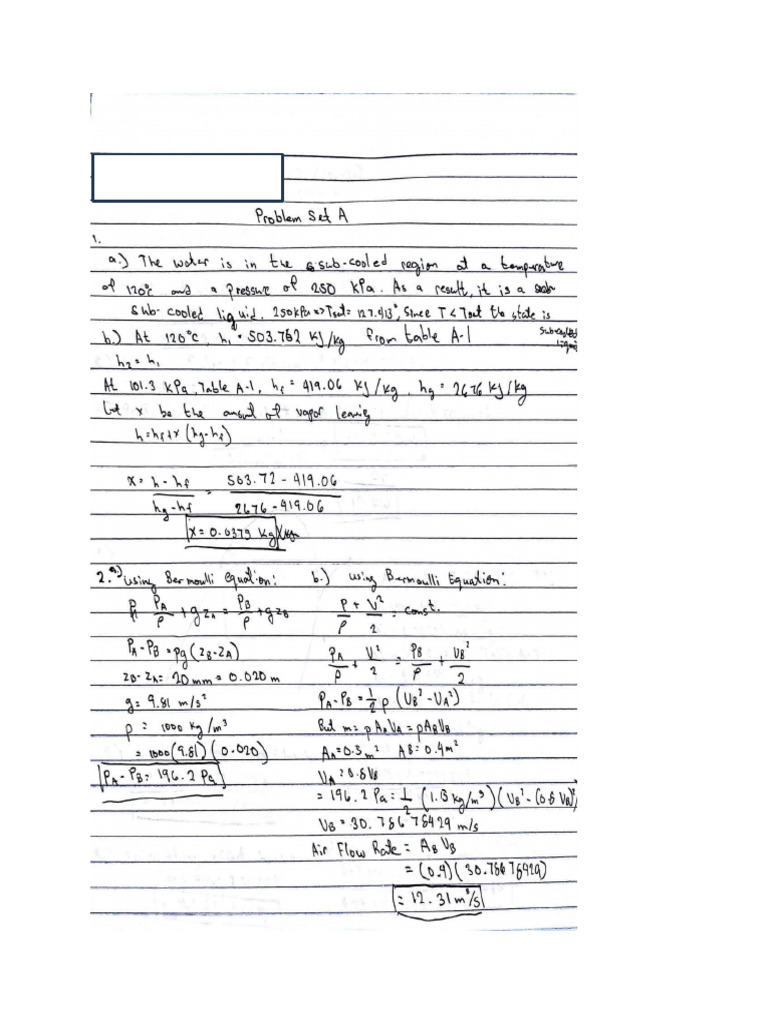 Problem Set A
1.
a.) The water is in the sub-cooled region at a temperature
of 120°C and a pressure of 250 kPa. As a result, it is a
sub-cooled liquid. 250kPa => Tsat = 127.413°, Since T < Tsat the state is
subcooled
liquid
b.) At 120°C, h₁ = 503.762 kJ/kg from table A-1
h₂ = h₁
At 101.3 kPa, Table A-1, hf = 419.06 kJ/kg, hg = 2676 kJ/kg
let x be the amount of vapor leaving
h = hf + x (hg - hf)
x = h - hf / hg - hf = 503.72 - 419.06 / 2676 - 419.06
x = 0.0379 kg
2. a.) using Bernoulli equation:
PA/ρ + gzA = PB/ρ + gzB
PA - PB = ρg (zB - zA)
zB - zA = 20 mm = 0.020 m
g = 9.81 m/s²
ρ = 1000 kg/m³
= 1000 (9.81) (0.020)
PA - PB = 196.2 Pa
b.) using Bernoulli Equation:
P/ρ + V²/2 = const.
PA/ρ + V²/2 = PB/ρ + VB²/2
PA - PB = 1/2 ρ (VB² - VA²)
But m = ρ AA VA = ρ AB VB
AA = 0.3 m² AB = 0.4 m²
= 196.2 Pa = 1/2 (1.3 kg/m³) (VB² - (0.8 VB)²)
VB = 30.78676929 m/s
Air Flow Rate = AB VB
= 12.31 m³/s